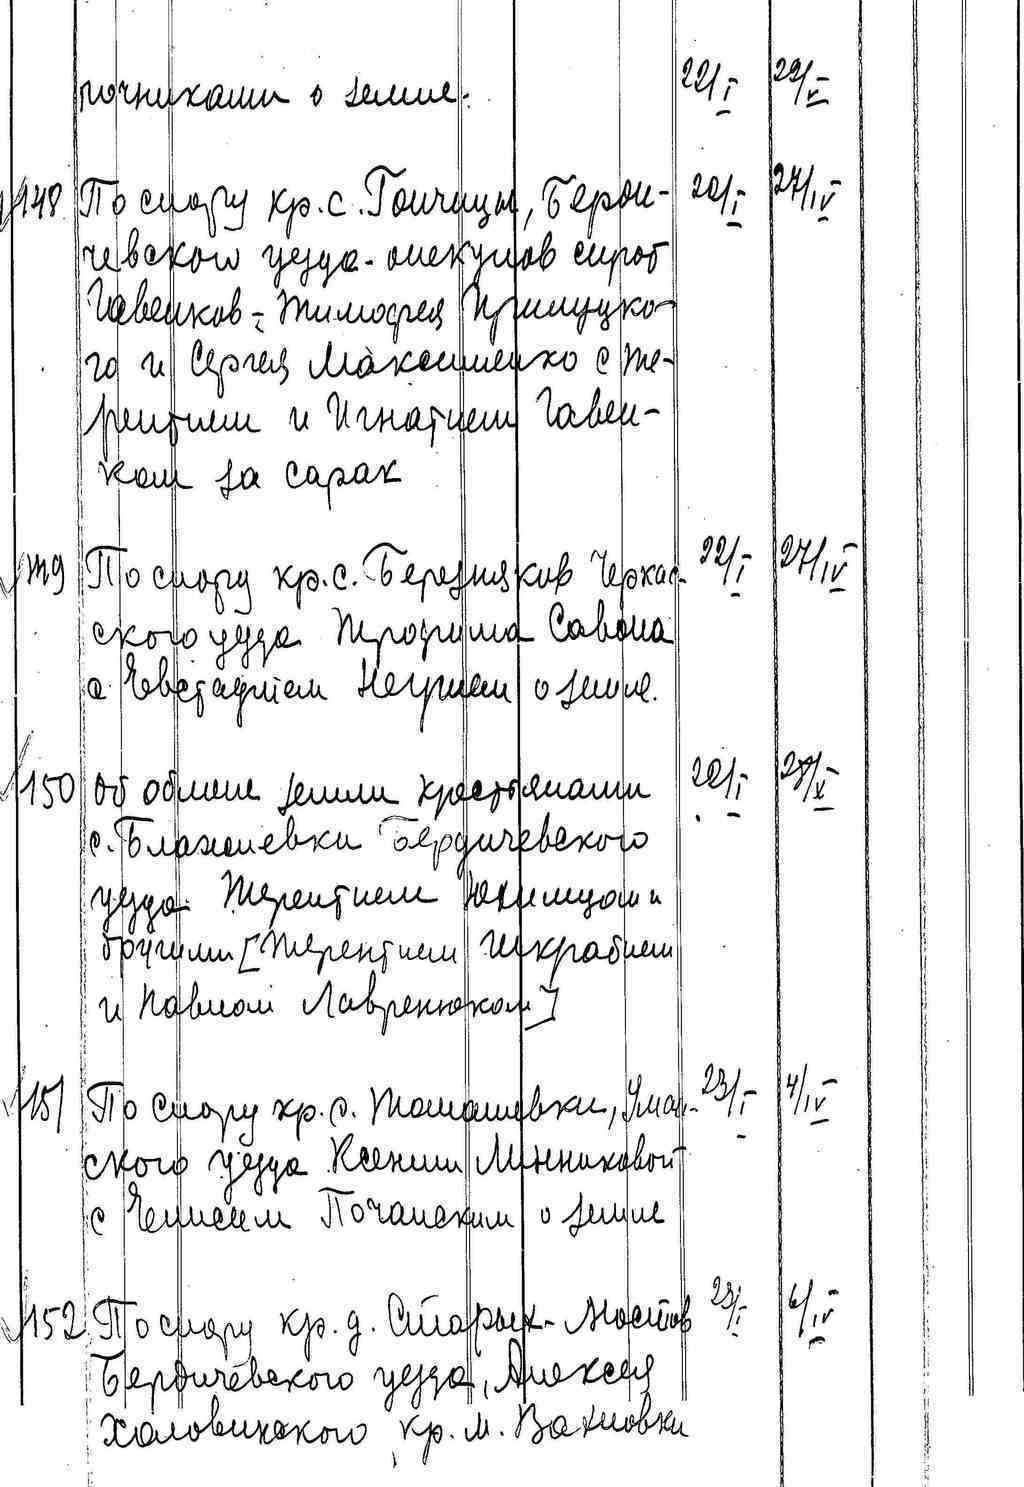 почниками о земле. 22/I 29/V
148 По спору кр. с. Гончицы, Берди- 20/I 27/IV
чевского уезда - опекунов сирот
Гавенков - Тимофея Прилуцко-
го и Сергея Максименко с Те-
рентием и Игнатием Гавен-
ком за сарак
149 По спору кр. с. Березняков Черкас- 22/I 27/IV
ского уезда Трофима Савона
с Евстафием Негрием о земле.
150 Об обмене земли крестьянами 22/I
с. Блажиевки Бердичевского
уезда Терентием Юхимцом и
другими [Терентием Шкрабием
и Павлом Лавренюком]
151 По спору кр. с. Томашевки, Уман- 23/I 4/IV
ского уезда Ксении Линниковой
с Енисеем Почанским о земле
152 По спору кр. д. Старых-Мостов 23/I 6/IV
Бердичевского уезда, Алексея
Халовинского кр. м. Вахновки